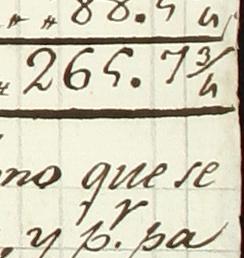 " " 88. 5 4
" 265. 7 3/4
no que se
, y p.r pa